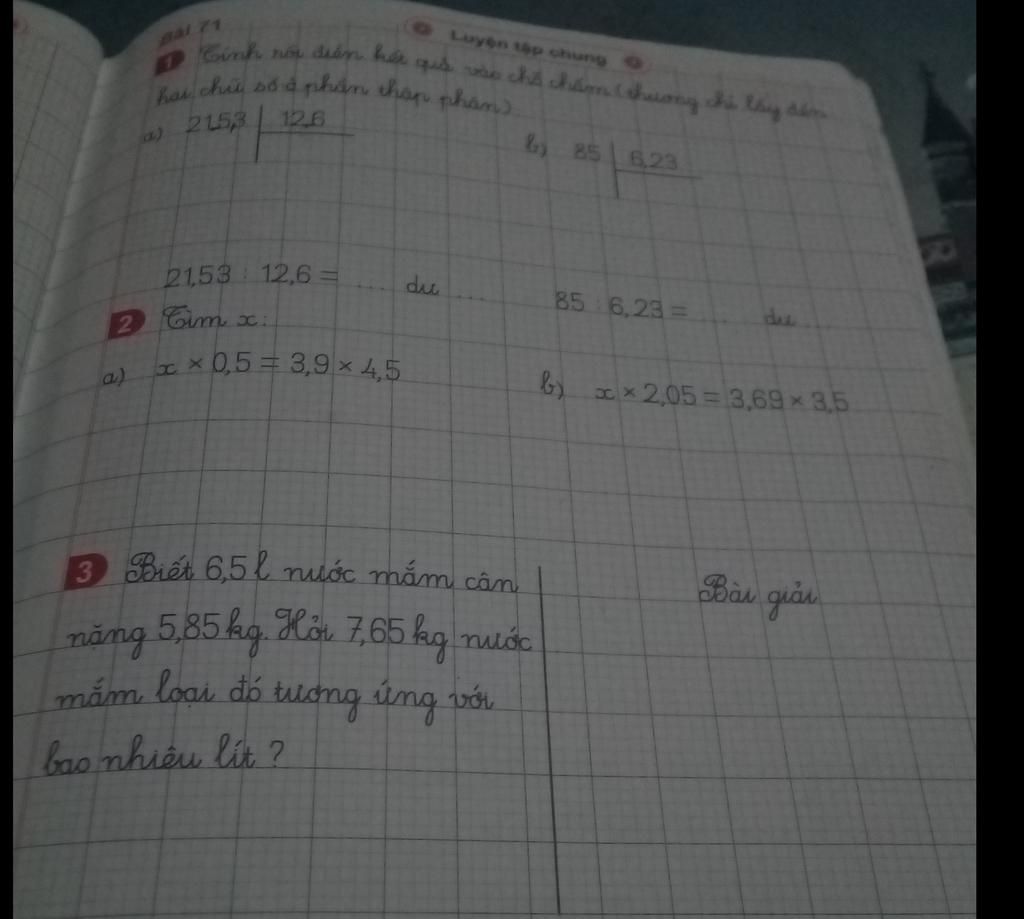 Bài 71
Luyện tập chung
1 Tính rồi điền kết quả vào chỗ chấm (thương chỉ lấy đến
hai chữ số ở phần thập phân)
a) 21,53 12,6
b) 85 6,23
21,53 : 12,6 = .... dư ....
85 : 6,23 = .... dư ....
2 Tìm x:
a) x × 0,5 = 3,9 × 4,5
b) x × 2,05 = 3,69 × 3,5
3 Biết 6,5l nước mắm cân
nặng 5,85kg. Hỏi 7,65kg nước
mắm loại đó tương ứng với
bao nhiêu lít?
Bài giải